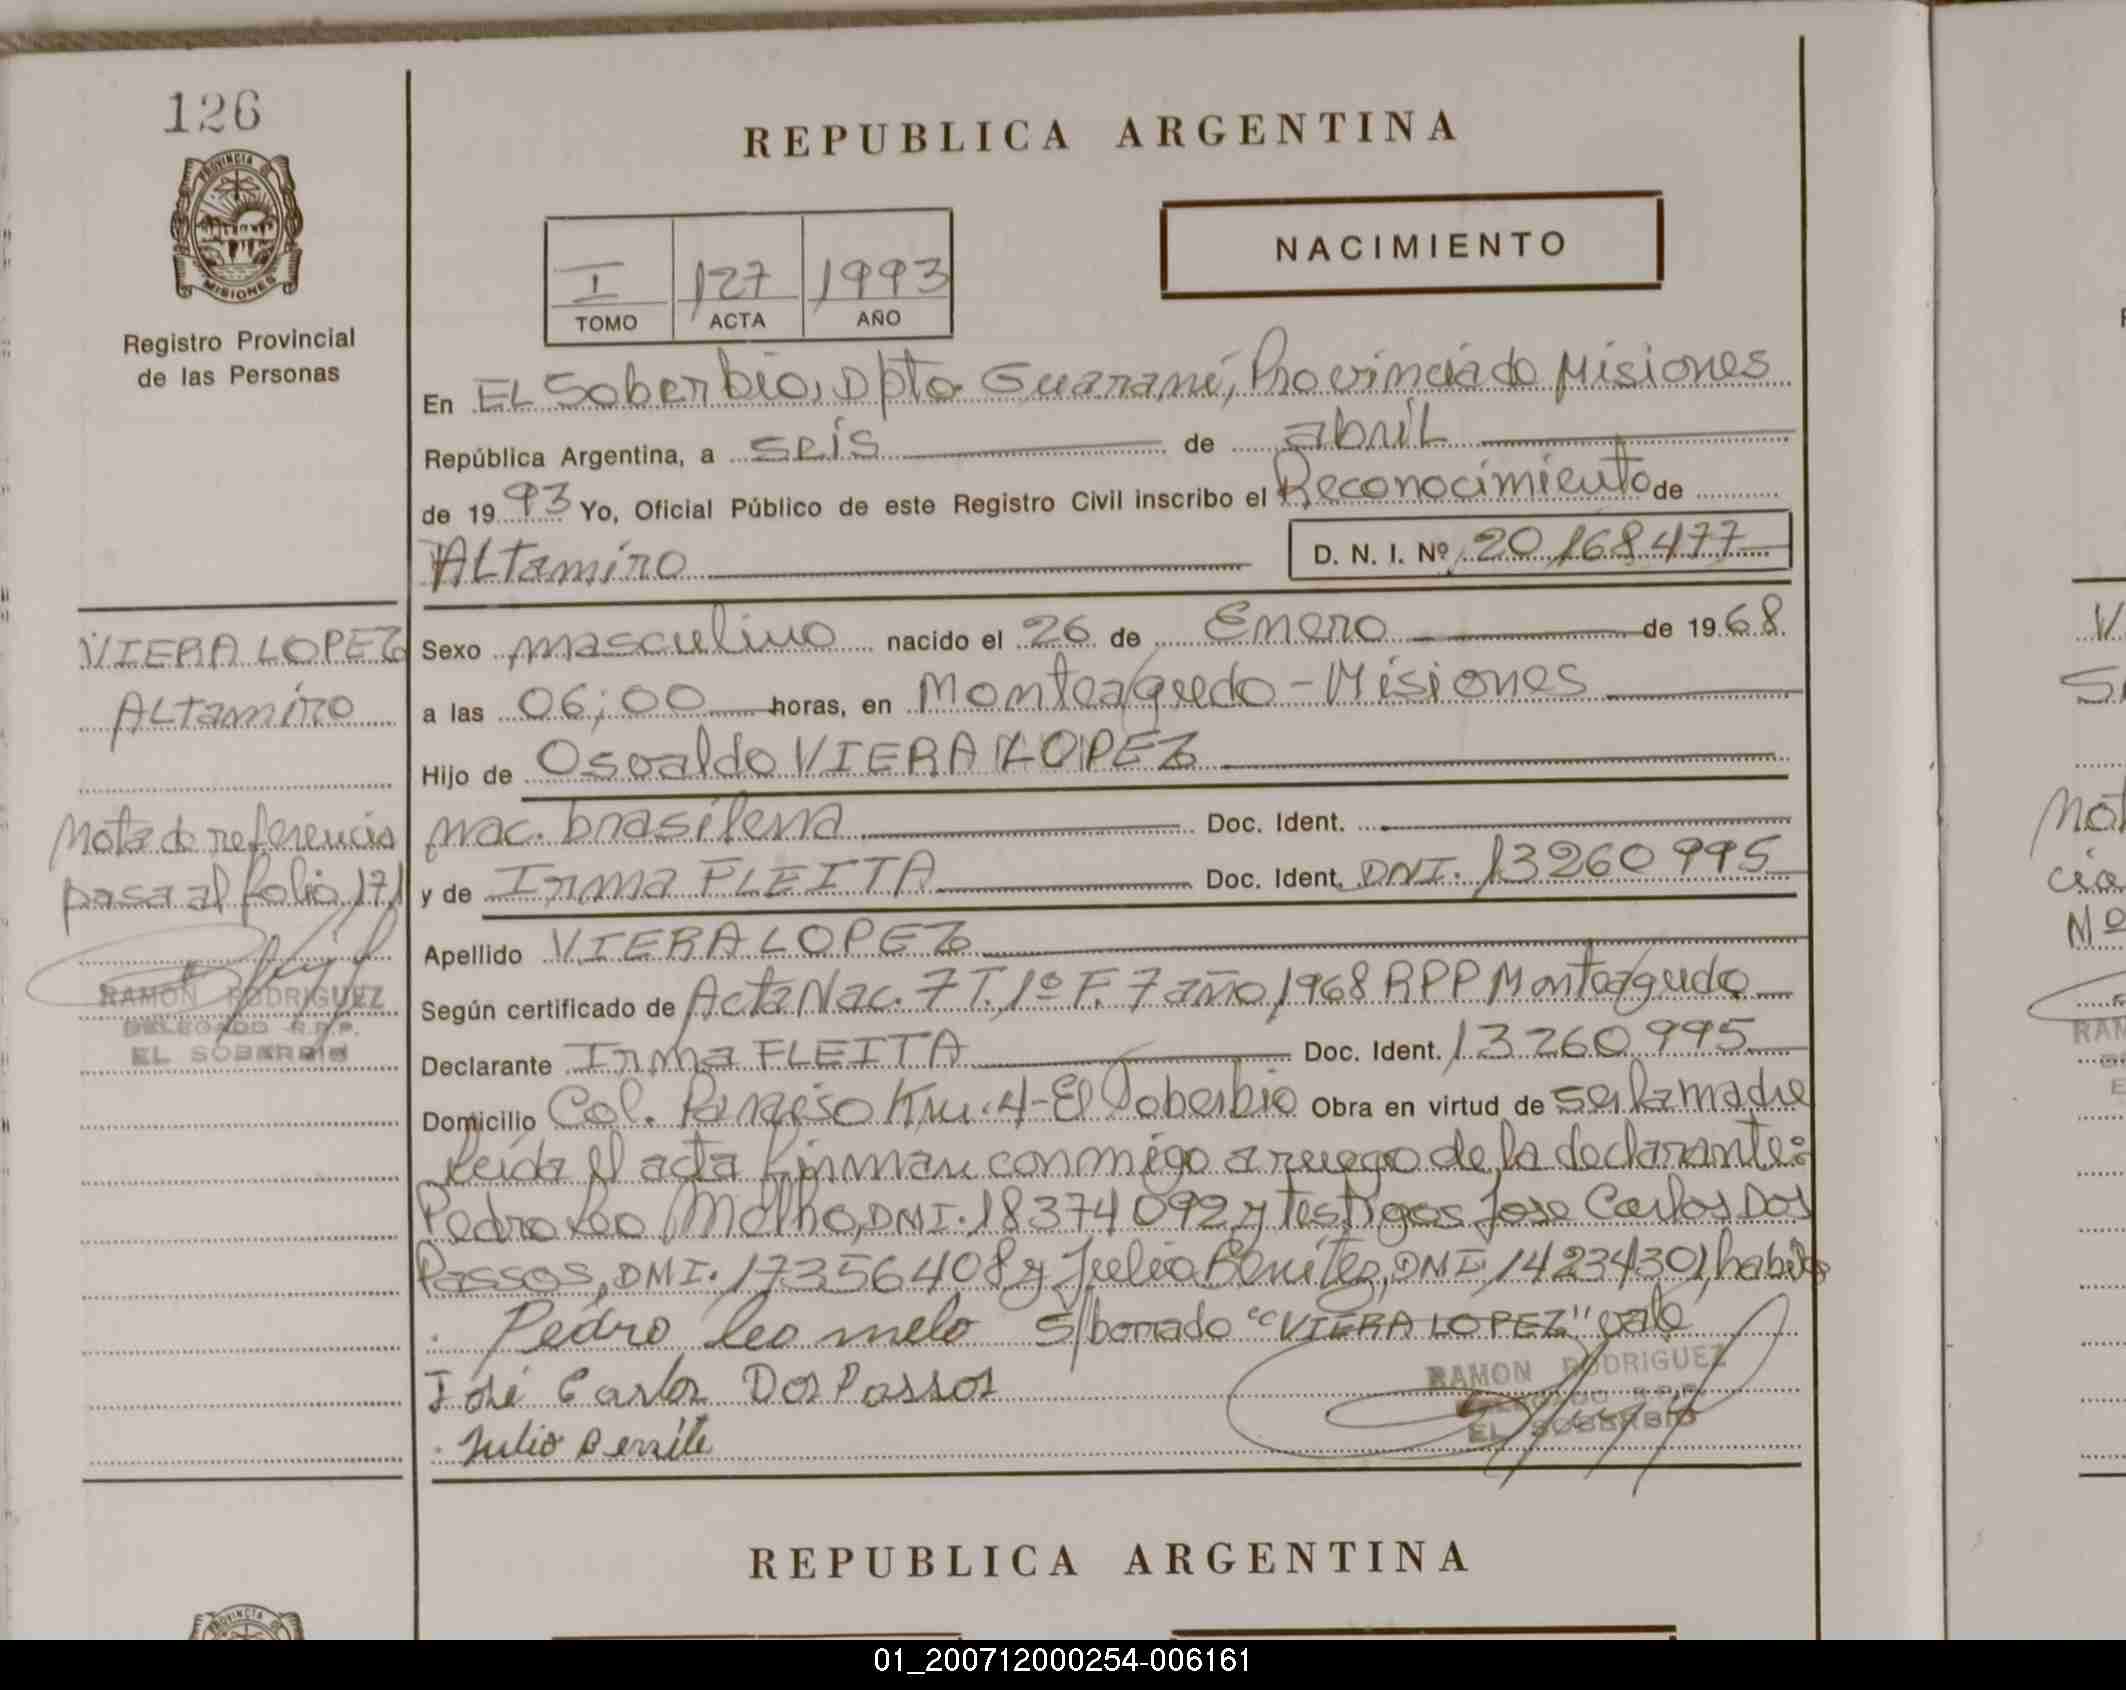 126
PROVINCIA DE
MISIONES
Registro Provincial
de las Personas
REPUBLICA ARGENTINA
NACIMIENTO
I 127 1993
TOMO ACTA AÑO
En EL Soberbio, Dpto Guaraní, Provincia de Misiones
República Argentina, a seis de abril
de 1993 Yo, Oficial Público de este Registro Civil inscribo el Reconocimiento de
Altamiro D. N. I. Nº 20168477
Sexo masculino nacido el 26 de Enero de 1968
a las 06;00 horas, en Monteagudo - Misiones
Hijo de Osvaldo VIERA LOPEZ
nac. brasilena Doc. Ident.
y de Irma FLEITA Doc. Ident. DNI. 13260995
Apellido VIERA LOPEZ
Según certificado de Acta Nac. 7 T. 1º F. 7 año 1968 RPP Monteagudo
Declarante Irma FLEITA Doc. Ident. 13260995
Domicilio Col. Paraiso Km. 4 - El Soberbio Obra en virtud de ser la madre
Leida el acta firman conmigo a ruego de la declarante:
Pedro Leo Melho, DNI. 18374092 y testigos Jose Carlos Dos
Passos, DNI. 17356408 y Julio Benitez, DNI 14234301, habiles
Pedro leo melo S/borrado "VIERA LOPEZ" vale
José Carlos Dos Passos
Julio Benite
RAMON RODRIGUEZ
DELEGADO R.P.P.
EL SOBERBIO
VIERA LOPEZ
Altamiro
Nota de referencia
pasa al folio 171
RAMON RODRIGUEZ
DELEGADO R.P.P.
EL SOBERBIO
REPUBLICA ARGENTINA
PROVINCIA
01_200712000254-006161